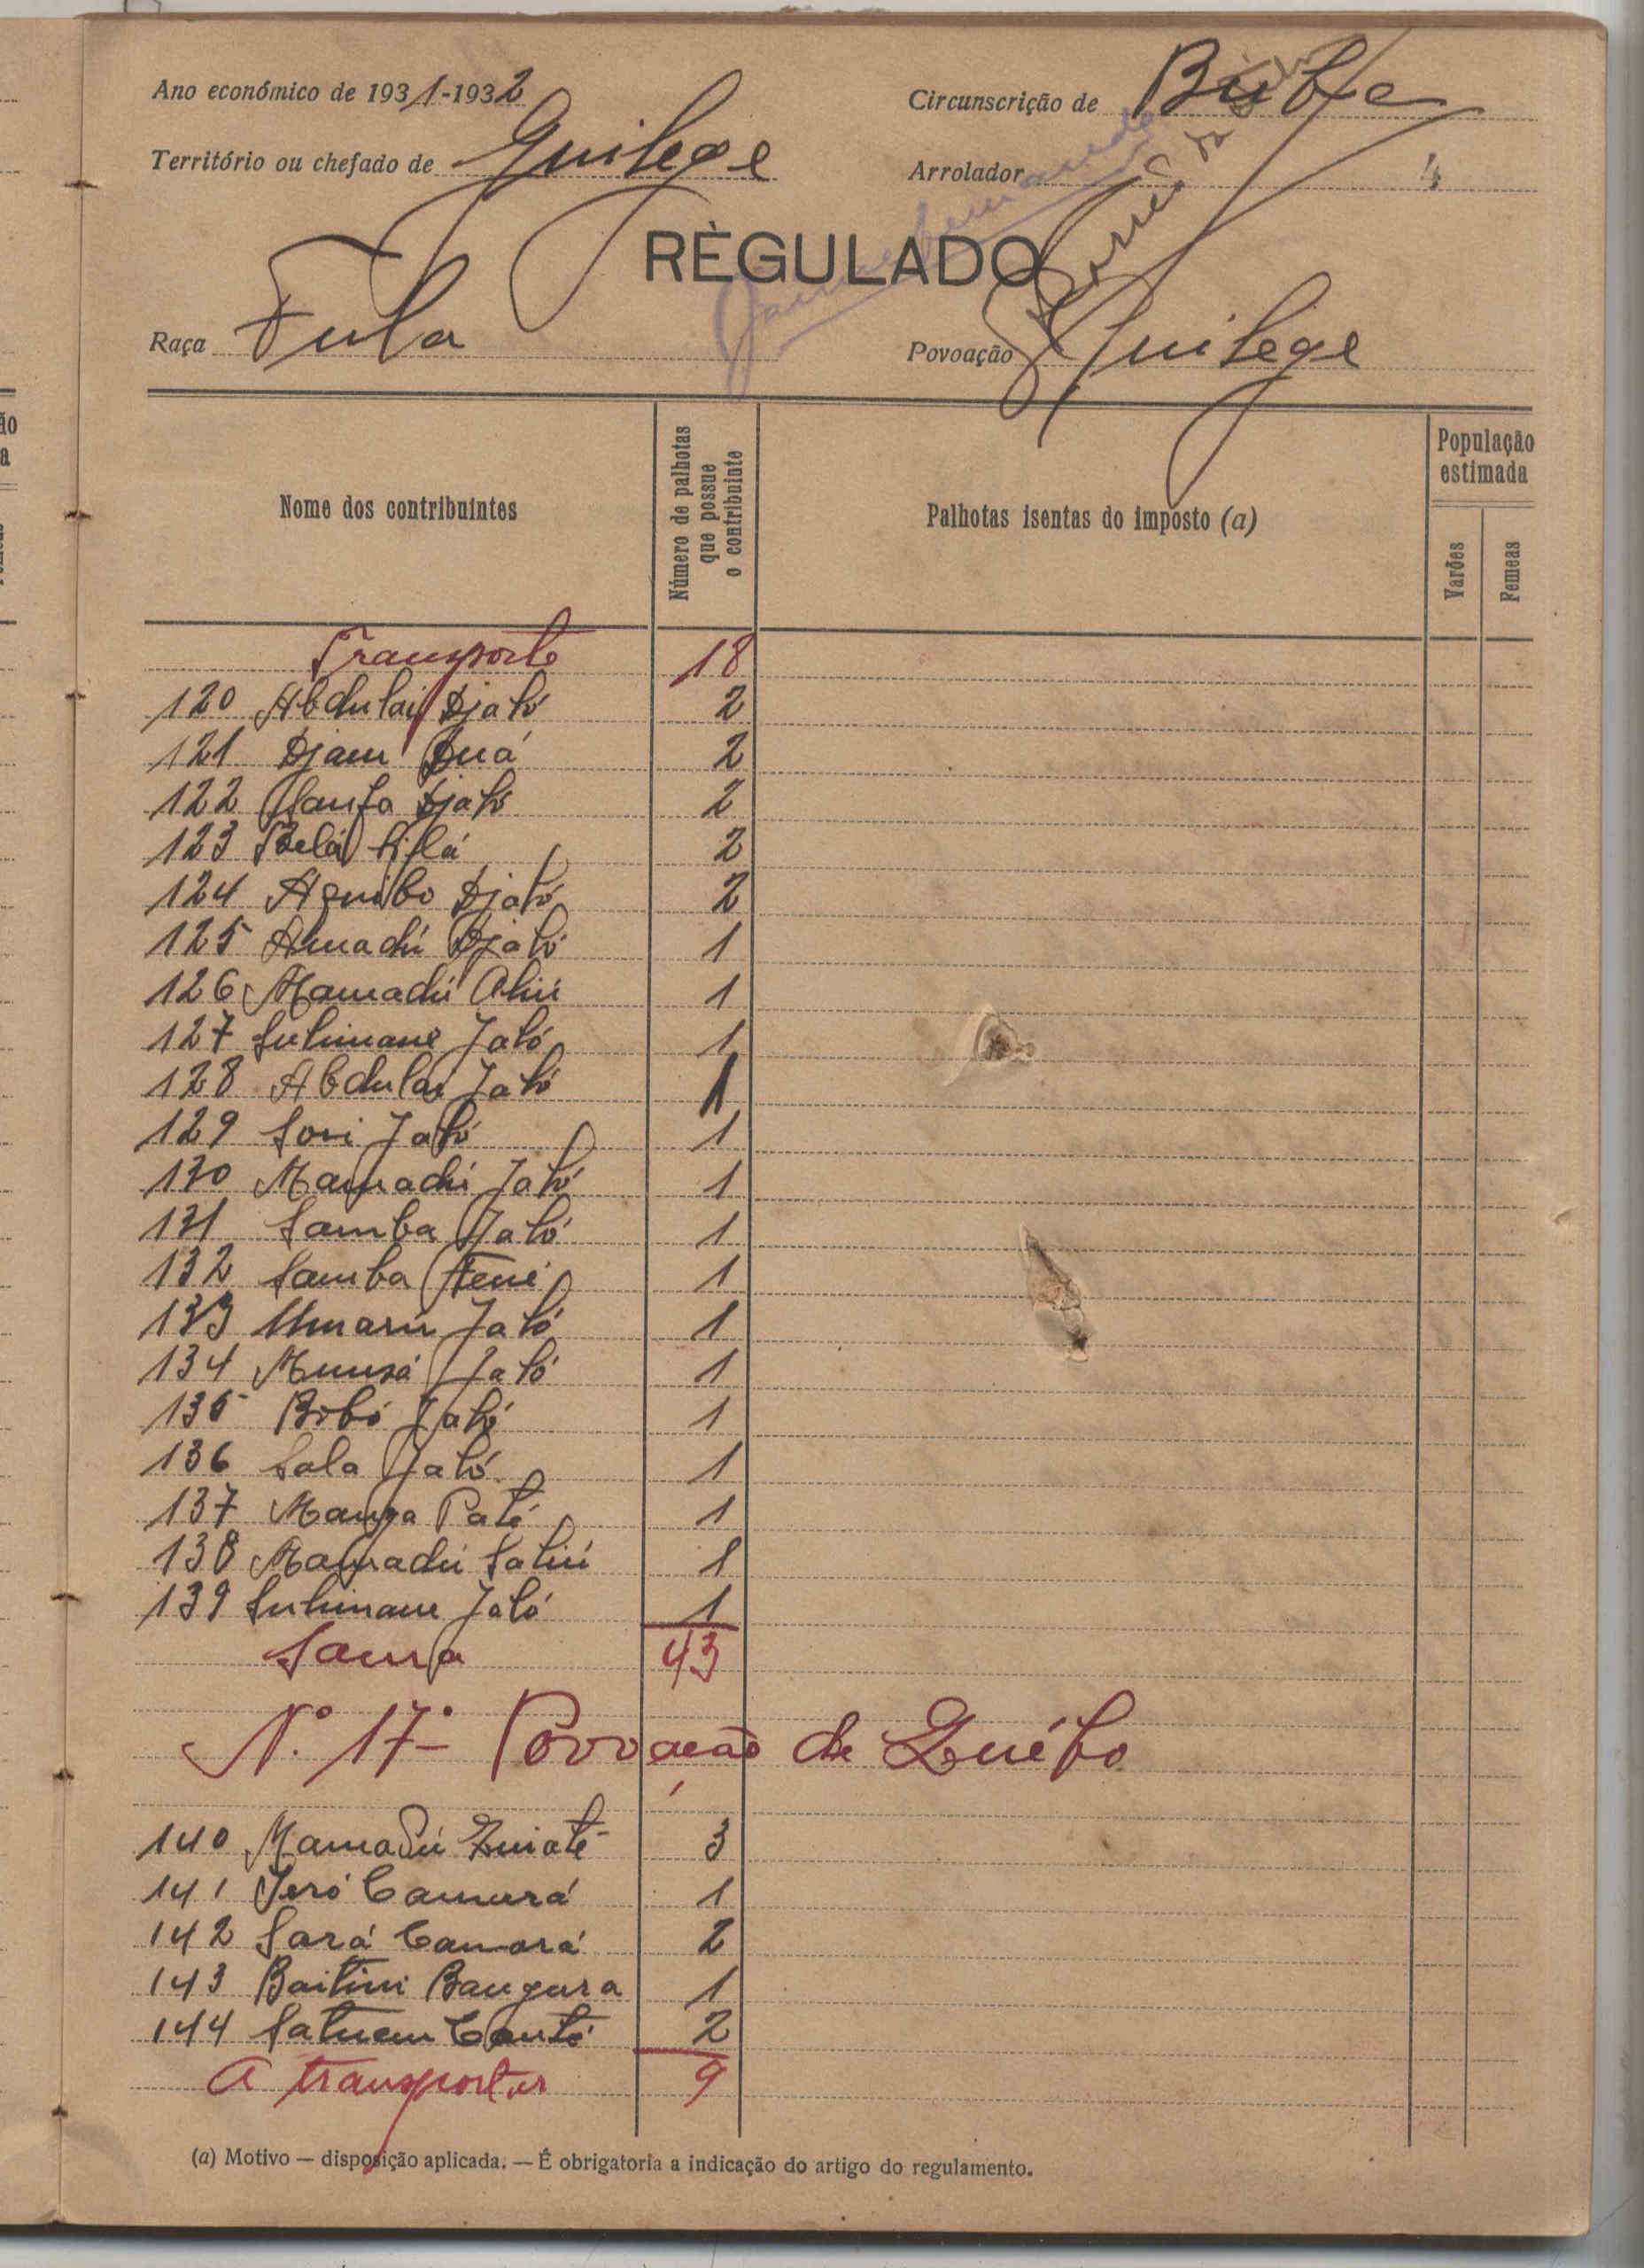 Ano económico de 1931-1932
Circunscrição de Buba
Território ou chefado de Guilege
Arrolador
4
RÈGULADO
Raça Fula
Povoação Guilege
Nome dos contribuintes
Número de palhotas que possue o contribuinte
Palhotas isentas do imposto (a)
População estimada
Varões
Femeas
Transporte 18
120 Abdulai Djaló 2
121 Djam Buá 2
122 Djaló 2
123 2
124 Aguibo Djaló 2
125 Amadú Djaló 1
126 Mamadú Aliú 1
127 Sulimane Jaló 1
128 Abdulai Jaló 1
129 Sori Jaló 1
130 Mamadú Jaló 1
131 Samba Jaló 1
132 Samba Tené 1
133 Umarú Jaló 1
134 Mumsá Jaló 1
135 Bobó Jaló 1
136 Sala Jaló 1
137 Manga Paté 1
138 Mamadú Saliú 1
139 Sulimane Jaló 1
Soma 43
N.º 17º - Povoação de Québo
140 Mamadú Quiaté 3
141 Jeró Camará 1
142 Sará Camará 2
143 Baitini Bangura 1
144 Satuem Cantó 2
A transportar 9
(a) Motivo — disposição aplicada. — É obrigatoria a indicação do artigo do regulamento.